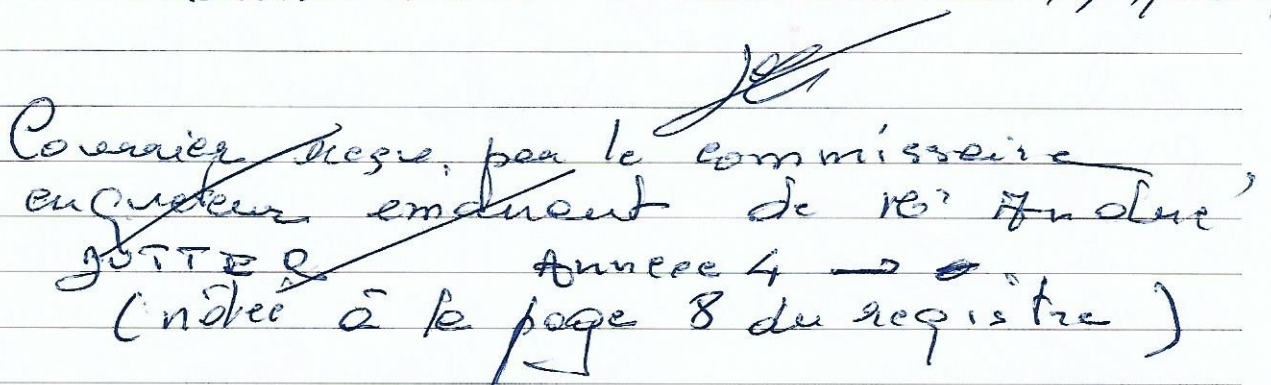 Courrier reçu par le commissaire
enquêteur emanant de Mr André
Annexe 4 →
(nôtée à la page 8 du registre)